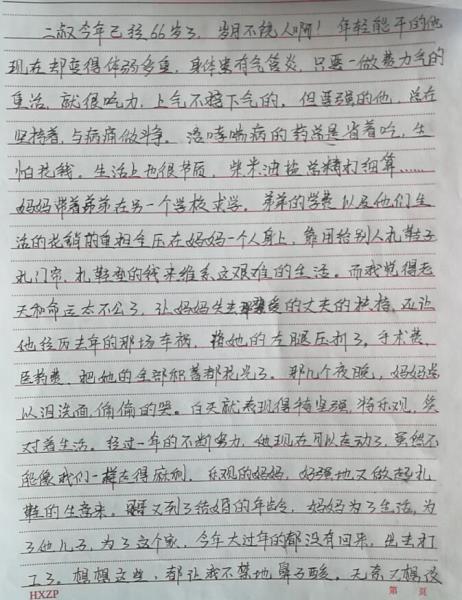 二叔今年已经66岁了，岁月不饶人啊！年轻能干的他
现在却变得体弱多重，身体患有气管炎，只要一做费力气的
重活，就很吃力，上气不接下气的。但要强的他，总在
坚持着，与病痛做斗争。治哮喘病的药总是省着吃，生
怕花钱。生活上也很节质，柴米油盐总精打细算……
妈妈带着弟弟在另一个学校求学。弟弟的学费以及他们生
活的花销的重担全压在妈妈一个人身上，靠用给别人扎鞋子
扎门帘，扎鞋垫的钱来维系这艰难的生活。而我觉得老
天和命运太不公了，让妈妈失去疼爱的丈夫的扶持，还让
他经历去年的那场车祸，将她的左腿压折了。手术费、
医药费，把她的全部积蓄都花光了。那几个夜晚，妈妈总
以泪洗面，偷偷的哭。白天就表现得特坚强，特乐观，笑
对着生活。经过一年的不断努力，她现在可以走动了，虽然不
能像我们一样走得麻利。乐观的妈妈，好强地又做起扎
鞋的生意来。又到了结婚的年龄，妈妈为了生活，为
了他儿子，为了这个家，今年大过年的都没有回来，出去打
工了。想想这些，都让我不禁地鼻子酸。无奈又想谈
HXZP 第 页